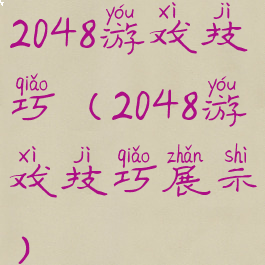 yóu xì jì
2048游戏技
qiǎo yóu
巧（2048游
xì jì qiǎo zhǎn shì
戏技巧展示
）